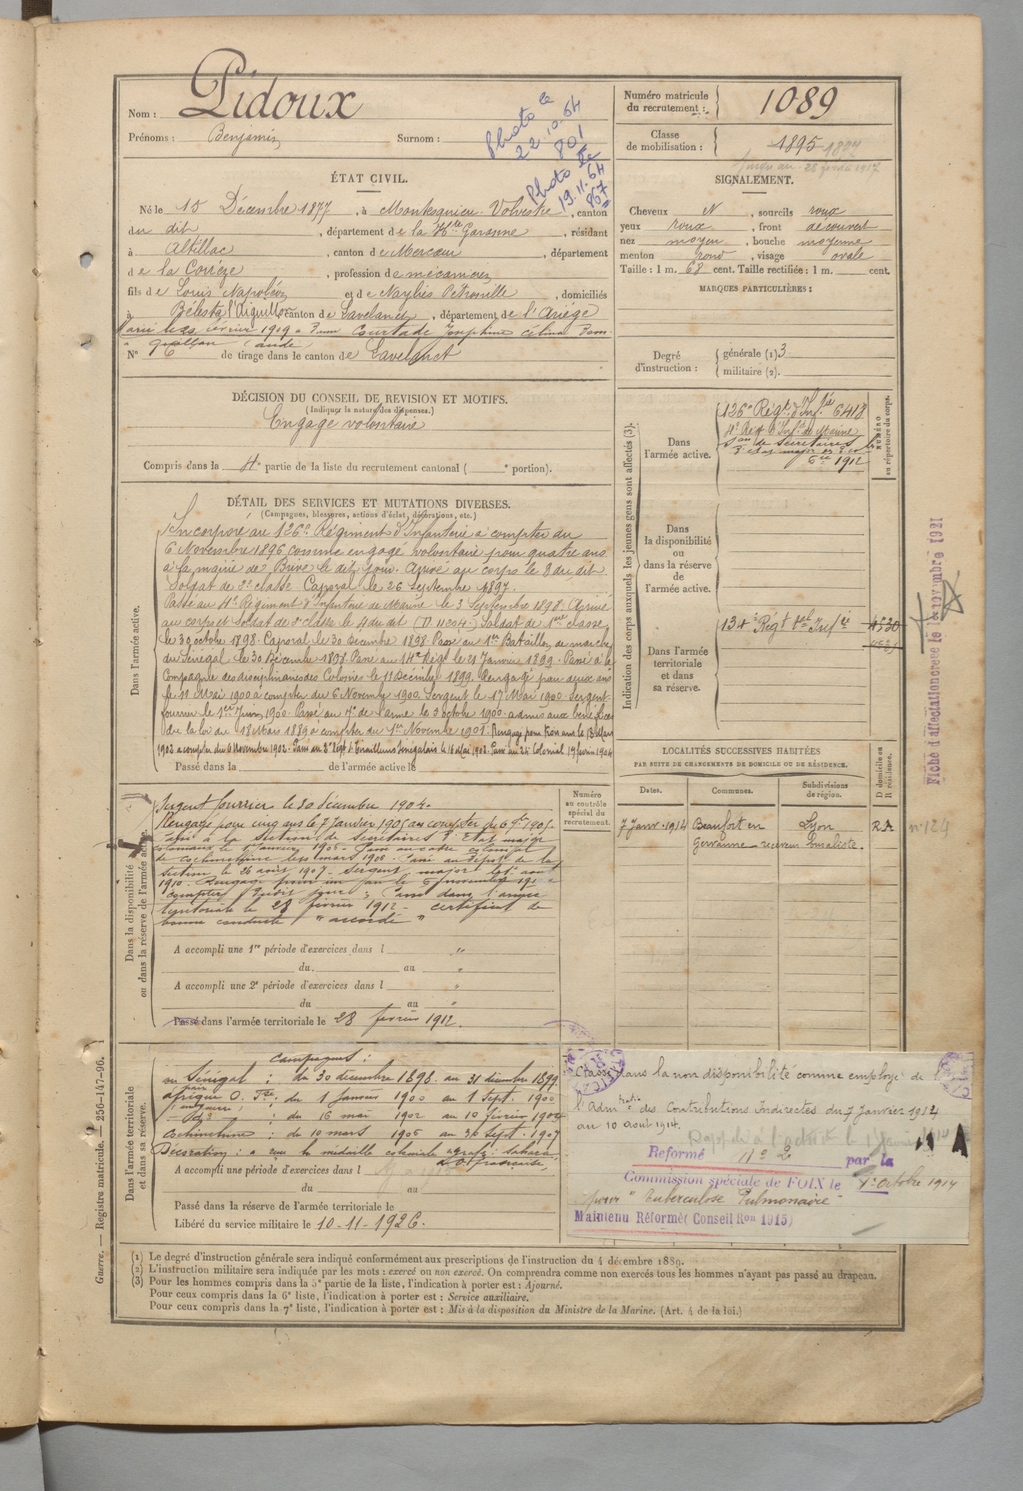 Nom : Pidoux
Prénoms : Benjamin Surnom :
Photo le
22.10.64
801
Photo le
19.11.64
867
Numéro matricule
du recrutement : 1089
Classe
de mobilisation : 1895 1892
28 février 1917
ÉTAT CIVIL.
Né le 15 Décembre 1877, à Montesquieu-Volvestre, canton
du dit, département de la Hte Garonne, résidant
à Altillac, canton de Mercœur, département
de la Corrèze, profession de mécanicien
fils de Louis Napoléon et de Naylies Pétronille, domiciliés
à Bélesta l'Aiguillon canton de Lavelanet, département de l'Ariège
Marié le 22 février 1919 à Courtade Joséphine Célina
à Quillan (Aude)
No 6 de tirage dans le canton de Lavelanet
SIGNALEMENT.
Cheveux N, sourcils roux
yeux roux, front découvert
nez moyen, bouche moyenne
menton rond, visage ovale
Taille : 1 m. 68 cent. Taille rectifiée : 1 m. cent.
MARQUES PARTICULIÈRES :
Degré
d'instruction :
générale (1) 3
militaire (2).
DÉCISION DU CONSEIL DE REVISION ET MOTIFS.
(Indiquer la nature des dispenses.)
Engagé volontaire
Compris dans la 4e partie de la liste du recrutement cantonal ( e portion).
Indication des corps auxquels les jeunes gens sont affectés (3).
NUMÉRO
au répertoire du corps.
Dans
l'armée active.
126e Régt d'Infie 6418
4e Régt d'Infie de Marine
Son de secrétaires
d'état major
1912
Dans
la disponibilité
ou
dans la réserve
de
l'armée active.
Dans l'armée
territoriale
et dans
sa réserve.
134e Régt tal Infie
DÉTAIL DES SERVICES ET MUTATIONS DIVERSES.
(Campagnes, blessures, actions d'éclat, décorations, etc.)
Dans l'armée active.
Incorporé au 126e Régiment d'Infanterie à compter du
6 Novembre 1896 comme engagé volontaire pour quatre ans
à la mairie de Brive le dit jour. Arrivé au corps le 8 du dit
Soldat de 2e classe Caporal le 26 septembre 1897.
Passé au 4e Régiment d'Infanterie de Marine le 3 Septembre 1898. Arrivé
au corps et soldat de 2e classe le 4 du dit (M 11204) Soldat de 1ère classe
le 30 octobre 1898. Caporal le 30 Décembre 1898. Passé au 1er Bataillon de marche
du Sénégal le 30 Décembre 1898. Passé au 14e Régt le 21 Janvier 1899. Passé à la
Compagnie des disciplinaires des Colonies le 11 Décembre 1899. Rengagé pour deux ans
le 11 Mai 1900 à compter du 6 Novembre 1900. Sergent le 17 Mai 1900. Sergent
fourrier le 1er Juin 1900. Passé au 4e de l'arme le 3 octobre 1900. admis aux bénéfices
de la loi du 18 Mars 1889 à compter du 1er Novembre 1901. Rengagé pour trois ans le 13 Mars
1902 à compter du 6 Novembre 1902. Passé au 2e Régt de Tirailleurs Sénégalais le 16 Mai 1902. Passé au 24 Colonial 19 février 1904
Passé dans la de l'armée active le
Dans la disponibilité
ou dans la réserve de l'armée active.
Sergent fourrier le 30 décembre 1904.
Rengagé pour cinq ans le 7 janvier 1905 à compter du 6 9bre 1905.
Passé à la section de secrétaires d'Etat major
coloniaux le 1er janvier 1906. Passé au cadre colonial
de cochinchine le 11 mars 1906. Passé au dépôt de la
section le 26 août 1907. Sergent major le 1er août
1910. Rengagé pour un an le 5 novembre 1910
à compter dudit jour. Passé dans l'armée
territoriale le 28 février 1912 - certificat de
bonne conduite "accordé"
A accompli une 1re période d'exercices dans l "
du. au "
A accompli une 2e période d'exercices dans l "
du au "
Passé dans l'armée territoriale le 28 février 1912.
Numéro
au contrôle
spécial du
recrutement.
LOCALITÉS SUCCESSIVES HABITÉES
PAR SUITE DE CHANGEMENTS DE DOMICILE OU DE RÉSIDENCE.
Dates. Communes. Subdivisions
de région. D domicile ou
R résidence.
7 Janv. 1914 Beaufort en Lyon R.A
Gervanne - receveur buraliste.
no 124
Fiche d'affectation créée le 10 novembre 1921
Dans l'armée territoriale
et dans sa réserve.
Campagnes :
au Sénégal : du 30 décembre 1898 au 31 décembre 1899
afrique O. Fse : du 1 janvier 1900 au 1 Sept. 1900
(en guerre)
- do - : du 16 mai 1902 au 10 février 1904
Cochinchine : du 10 mars 1906 au 30 Sept. 1907
Décoration : a reçu la médaille coloniale agrafe Sahara
A.O. française
A accompli une période d'exercices dans l
du au
Passé dans la réserve de l'armée territoriale le
Libéré du service militaire le 10-11-1926.
Classé dans la non disponibilité comme employé de
l'Admtion des Contributions Indirectes du 7 Janvier 1914
au 10 aout 1914.
Réformé no 2 par la
Commission spéciale de FOIX le 1er Octobre 1914
pour "Tuberculose Pulmonaire"
Maintenu Réformé (Conseil Ron 1915)
(1) Le degré d'instruction générale sera indiqué conformément aux prescriptions de l'instruction du 4 décembre 1889.
(2) L'instruction militaire sera indiquée par les mots : exercé ou non exercé. On comprendra comme non exercés tous les hommes n'ayant pas passé au drapeau.
(3) Pour les hommes compris dans la 5e partie de la liste, l'indication à porter est : Ajourné.
Pour ceux compris dans la 6e liste, l'indication à porter est : Service auxiliaire.
Pour ceux compris dans la 7e liste, l'indication à porter est : Mis à la disposition du Ministre de la Marine. (Art. 4 de la loi.)
Guerre. — Registre matricule. — 256-147-96.